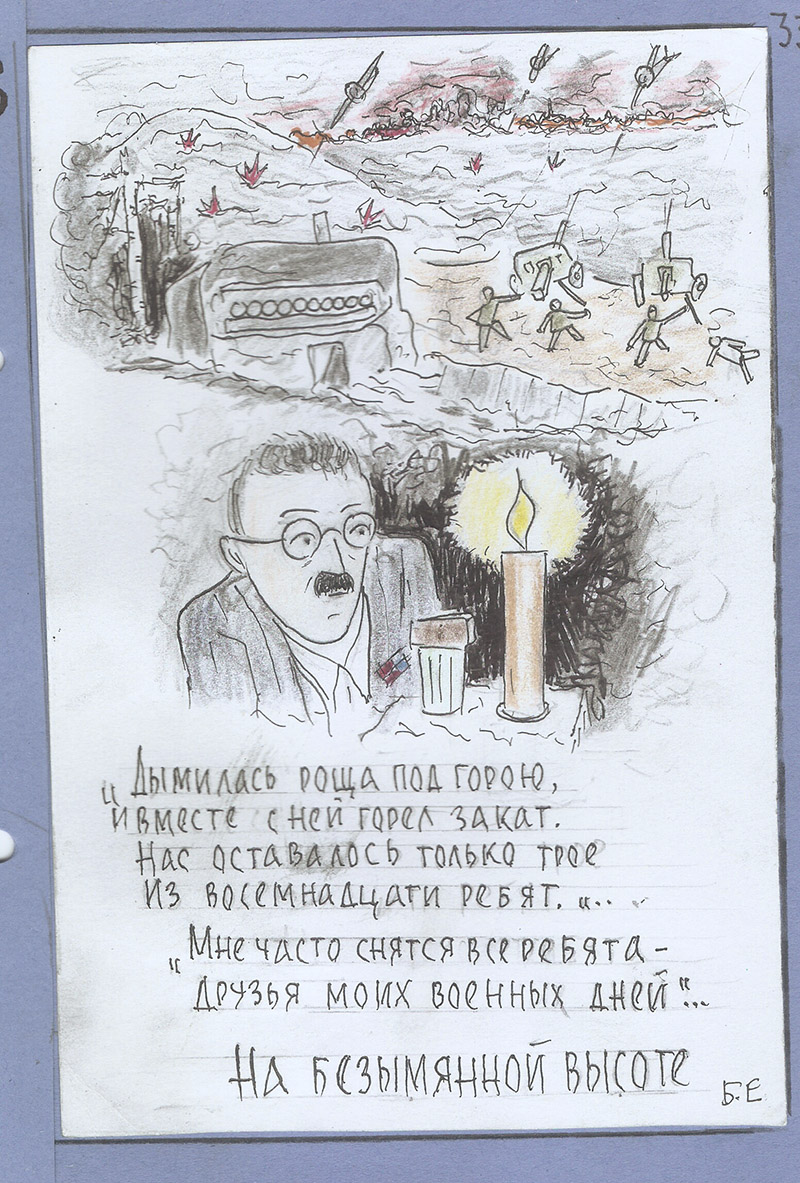 33
„Дымилась роща под горою,
И вместе с ней горел закат.
Нас оставалось только трое
Из восемнадцати ребят. „...
„Мне часто снятся все ребята –
Друзья моих военных дней"...
На безымянной высоте
Б.Е